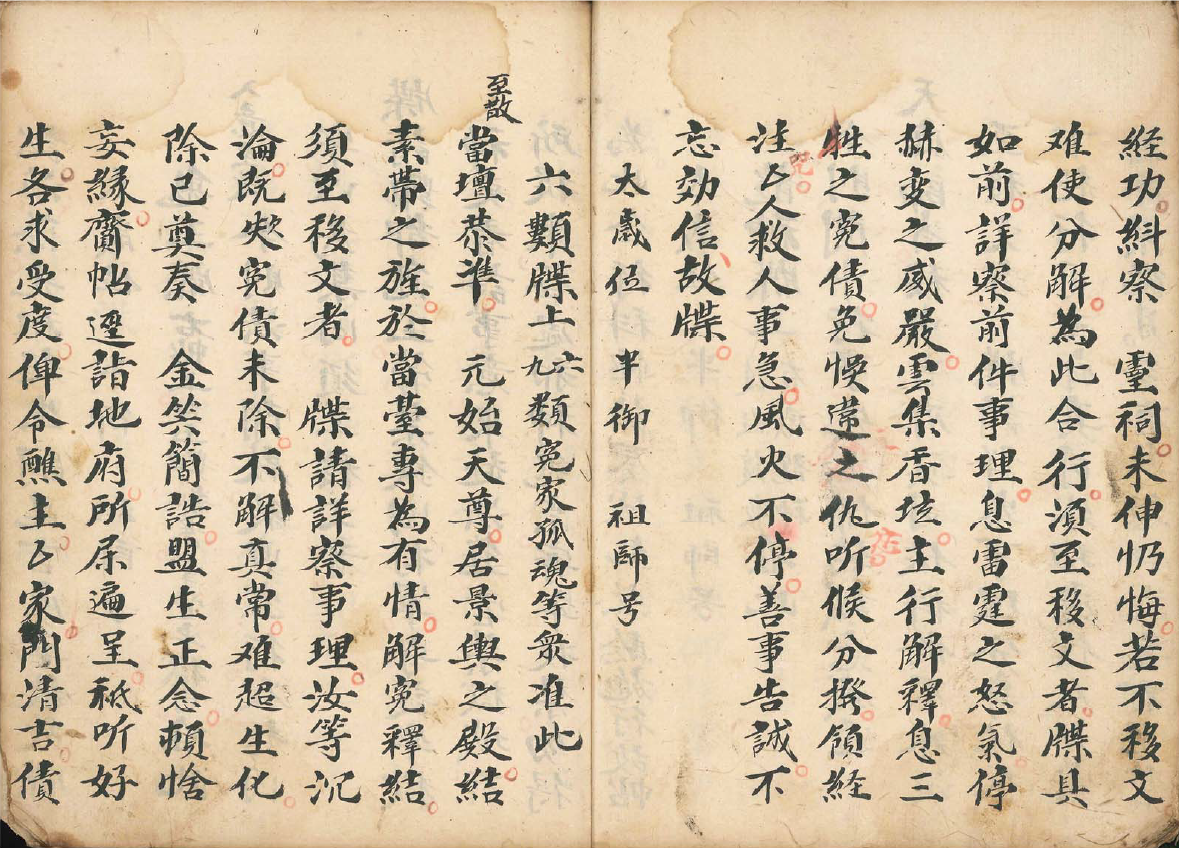 経功糾察　靈祠未伸忏悔若不移文
难使分解為此合行湏至移文者牒具
如前詳察前件事理息雷霆之怒氣停
赫变之威嚴雲集香坛主行解釋息三
牲之寃債免悞遠之仇听候分撥領経
注亾人救人事急風火不停善事告誠不
忘効信故牒
太歳位　半御　祖師号
六類牒上六九類寃家孤魂等衆准此
至散
當壇恭準　元始天尊居景輿之殿結
素帶之旌於當臺專為有情解寃釋結
須至移文者　牒請詳察事理汝等沉
淪既失寃債未除不解真常难超生化
除已奠奏　金笑簡誥盟生正念頼惜
妄縁賫帖逕詣地府所屎遍呈祗听好
生各求受度俾令醮主亾家門清吉債